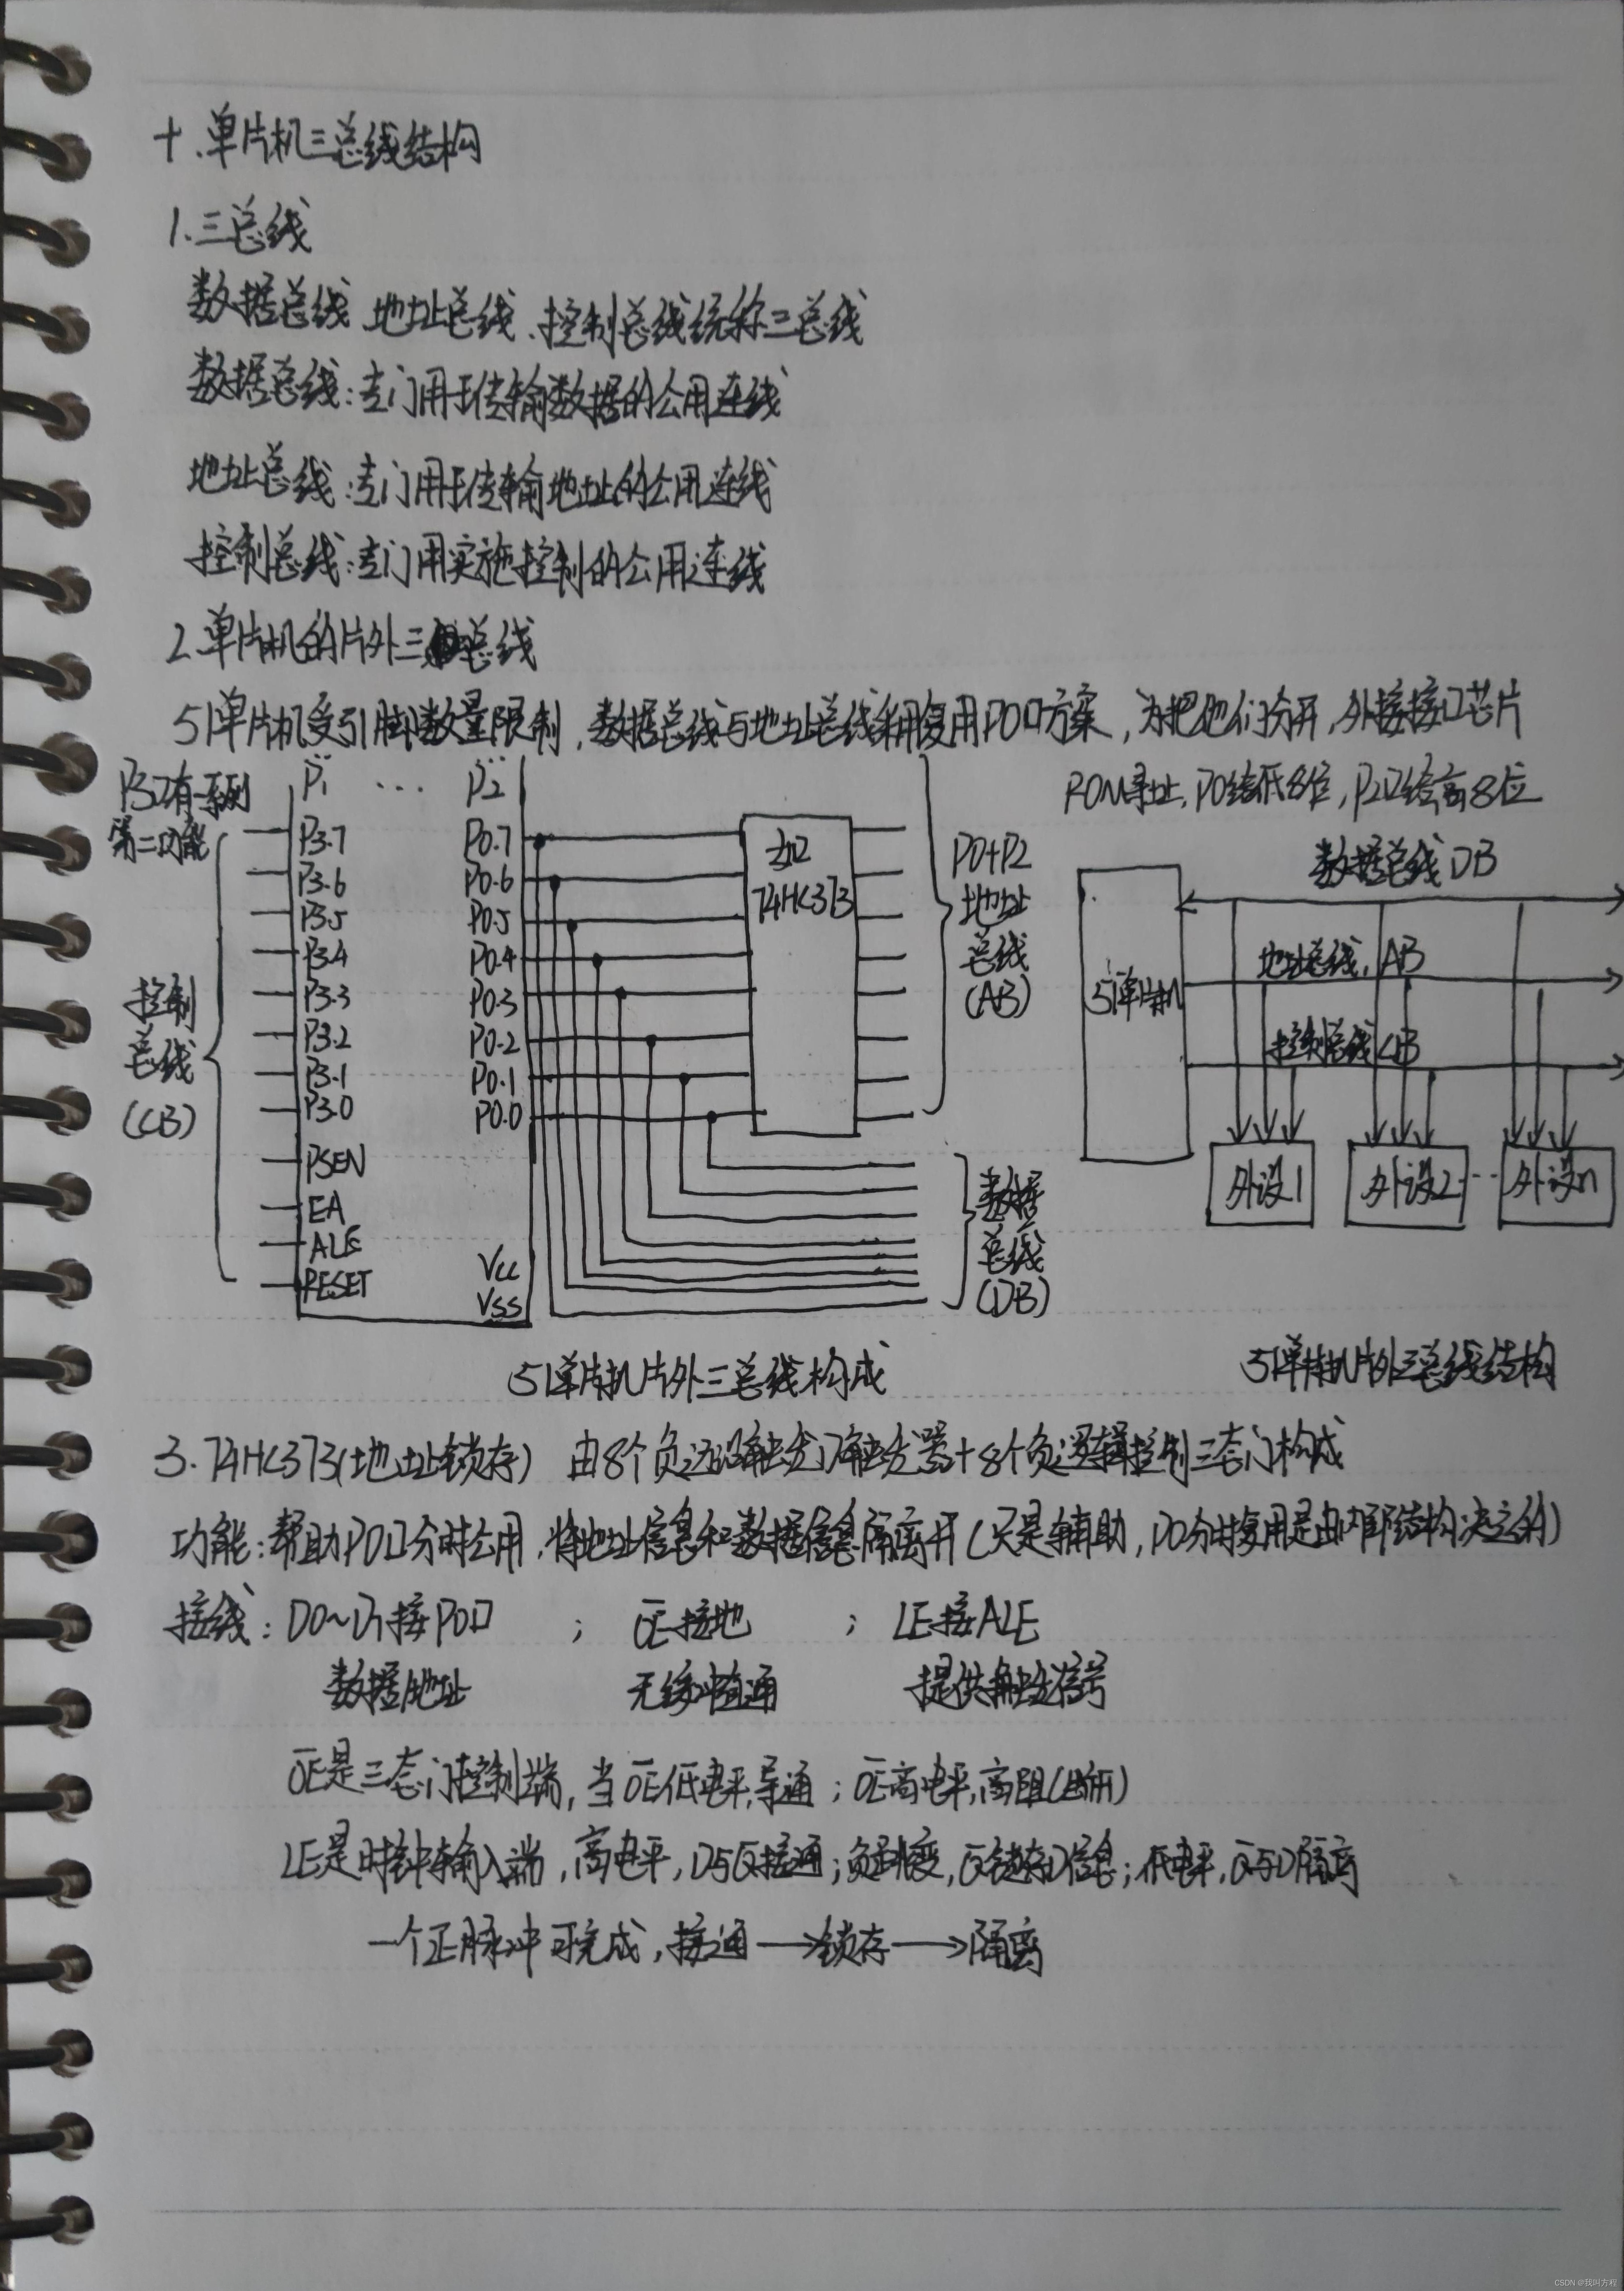 十.单片机三总线结构
1.三总线
数据总线、地址总线、控制总线统称三总线
数据总线:专门用于传输数据的公用连线
地址总线:专门用于传输地址的公用连线
控制总线:专门用实施控制的公用连线
2.单片机的片外三总线
51单片机受引脚数量限制,数据总线与地址总线采用复用P0口方案,为把他们分开,外接接口芯片
ROM寻址,P0给低8位,P2口给高8位
P3口有一系列
第二功能
控制
总线
(CB)
P1 ... P2
P3.7
P3.6
P3.5
P3.4
P3.3
P3.2
P3.1
P3.0
PSEN
EA
ALE
RESET
P0.7
P0.6
P0.5
P0.4
P0.3
P0.2
P0.1
P0.0
Vcc
Vss
如
74HC373
P0+P2
地址
总线
(AB)
数据
总线
(DB)
51单片机
数据总线DB
地址总线AB
控制总线CB
外设1
外设2
...
外设n
51单片机片外三总线构成
51单片机片外三总线结构
3.74HC373(地址锁存) 由8个负边沿触发D触发器+8个负逻辑控制三态门构成
功能:帮助P0口分时公用,将地址信息和数据信息隔离开(只是辅助,P0分时复用是由内部结构决定的)
接线:D0~D7接P0口 ; O̅E̅接地 ; LE接ALE
数据/地址 无缓冲直通 提供触发信号
O̅E̅是三态门控制端,当O̅E̅低电平,导通;O̅E̅高电平,高阻(断开)
LE是时钟输入端,高电平,D与Q̅接通;负跳变,Q̅锁存D信息;低电平,Q̅与D隔离
一个正脉冲可完成,接通→锁存→隔离
CSDN @我叫方程